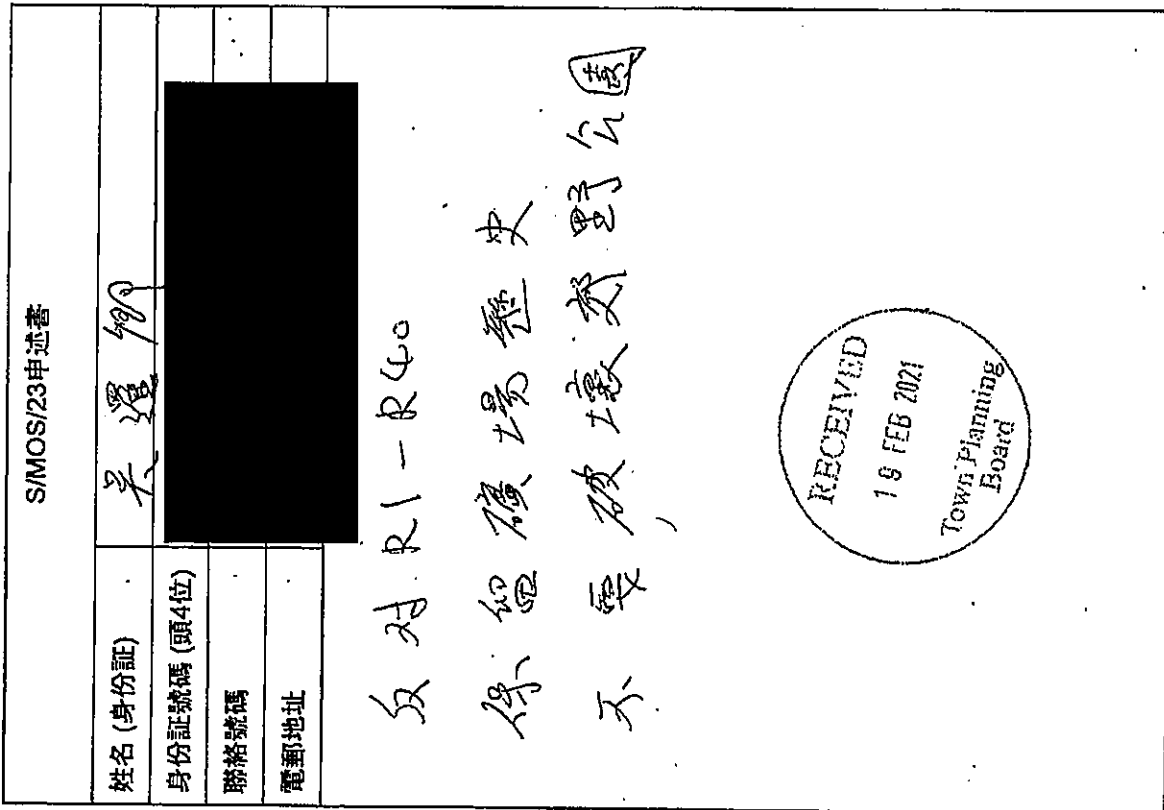 S/MOS/23申述書
姓名 (身份証)
吳
身份証號碼 (頭4位)
聯絡號碼
電郵地址
反对 R1-R40
保留礦場歷史
不要破壞郊野公園
RECEIVED
18 FEB 2021
Town Planning
Board